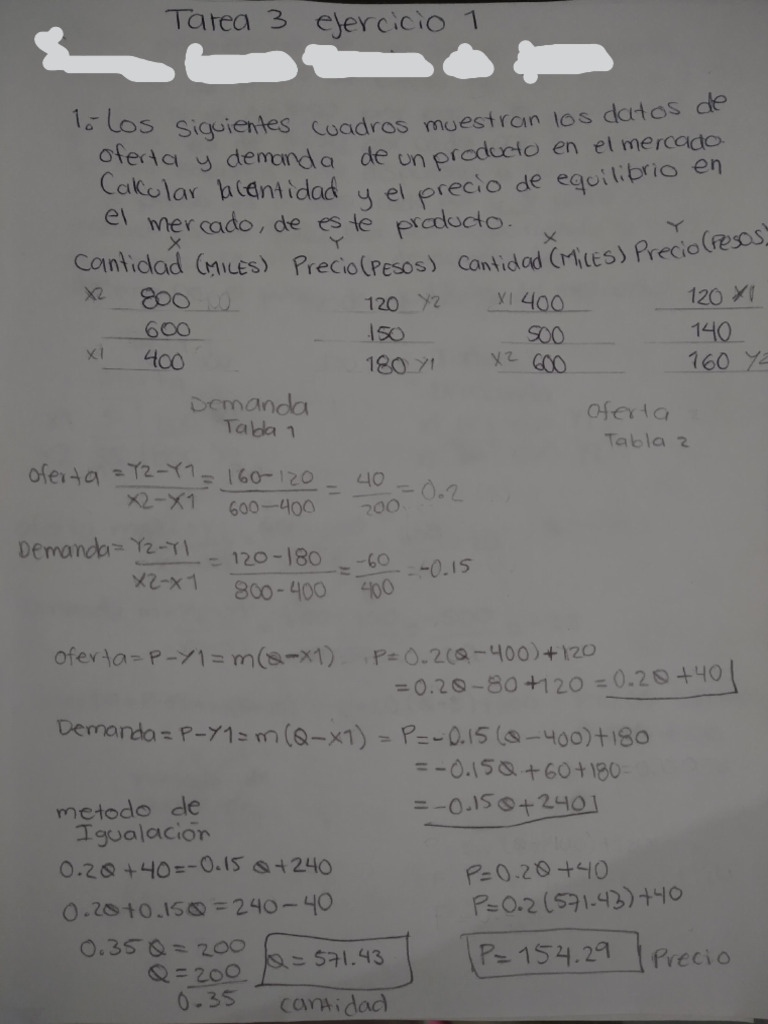 Tarea 3 ejercicio 1
1.- Los siguientes cuadros muestran los datos de
oferta y demanda de un producto en el mercado.
Calcular la Cantidad y el precio de equilibrio en
el mercado, de este producto.
X Y X Y
Cantidad (MILES) Precio (PESOS) Cantidad (MILES) Precio (PESOS)
X2 800 120 Y2 X1 400 120 Y1
600 150 500 140
X1 400 180 Y1 X2 600 160 Y2
Demanda Oferta
Tabla 1 Tabla 2
Oferta = Y2-Y1/X2-X1 = 160-120/600-400 = 40/200 = 0.2
Demanda = Y2-Y1/X2-X1 = 120-180/800-400 = -60/400 = -0.15
Oferta = P-Y1 = m(Q-X1) P = 0.2(Q-400)+120
= 0.2Q-80+120 = 0.2Q+40
Demanda = P-Y1 = m(Q-X1) = P = -0.15(Q-400)+180
= -0.15Q+60+180
= -0.15Q+240
metodo de
Igualación
0.2Q+40 = -0.15Q+240 P = 0.2Q+40
0.2Q+0.15Q = 240-40 P = 0.2(571.43)+40
0.35Q = 200 Q = 571.43 P = 154.29 Precio
Q = 200/0.35 cantidad